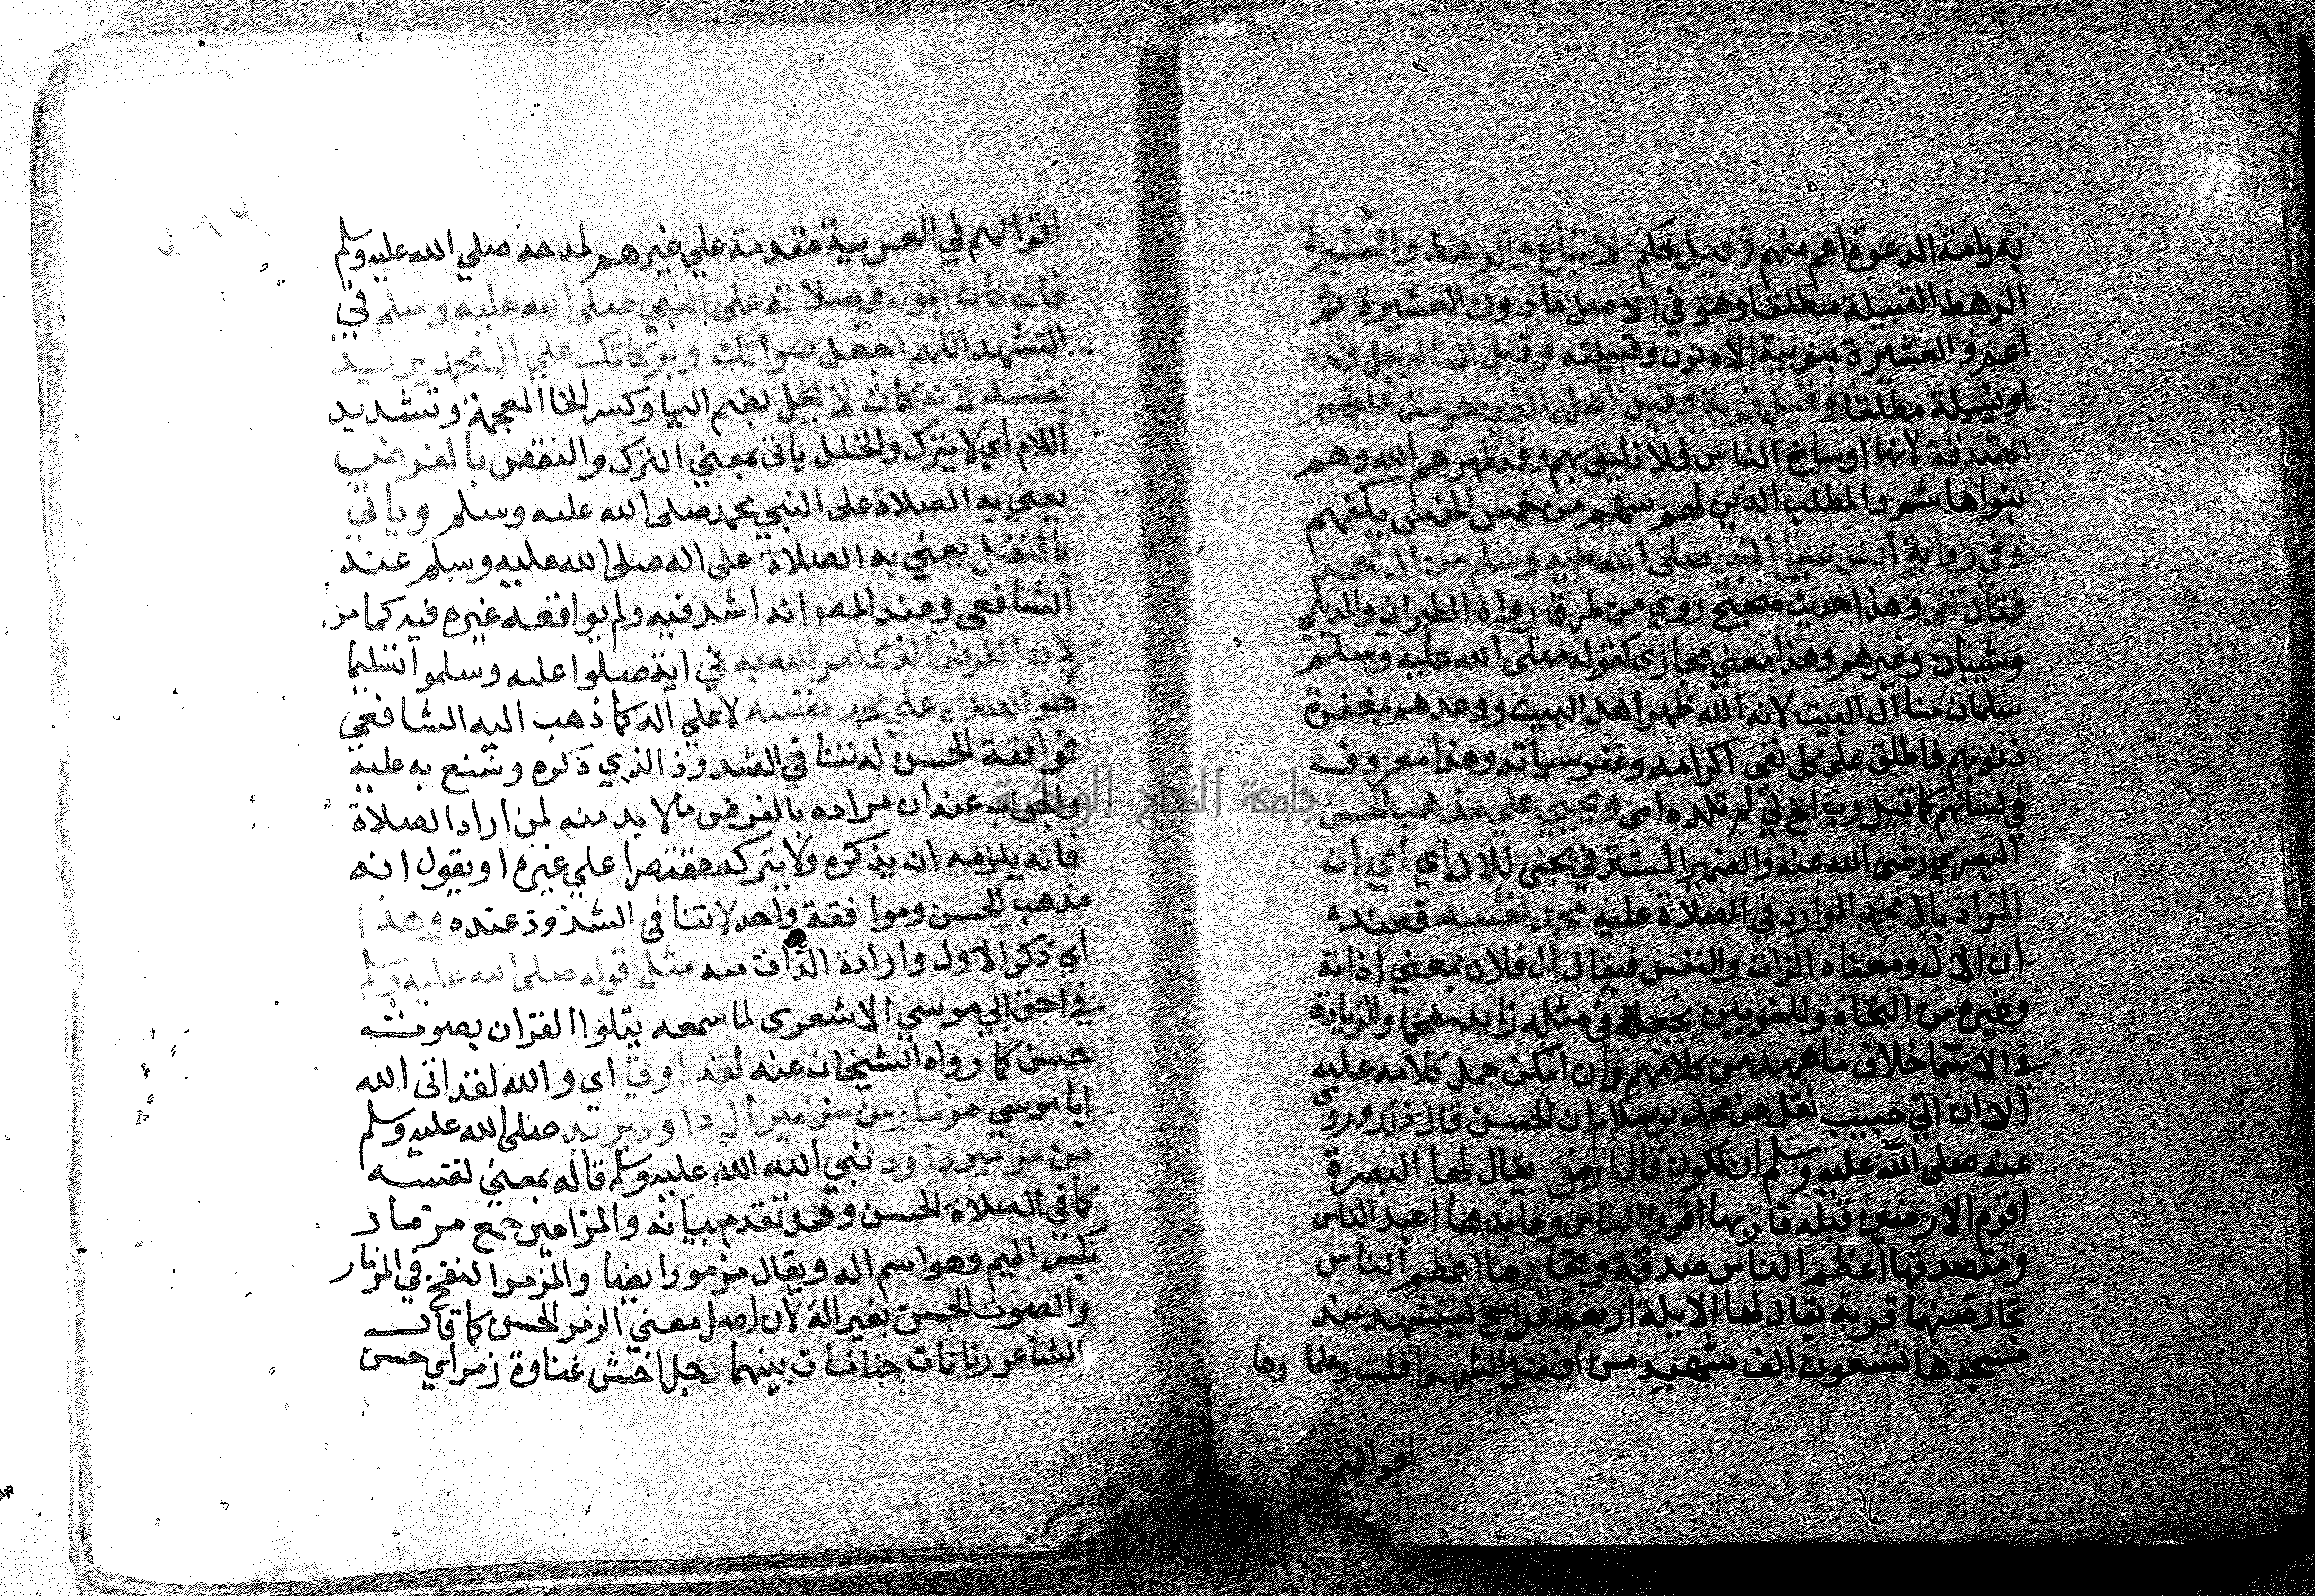 به وامة الدعوة اعم منهم وقيل الاتباع والرهط والعشيرة
الرهط القبيلة مطلقا وهو في الاصل مادون العشيرة ثم
اعم والعشيرة بنو بيه الادنون وقبيلته وقيل ال الرجل ولده
او نسله مطلقا وقيل قربة وقيل اهله الذين حرمت عليهم
الصدقة لانها اوساخ الناس فلا تليق بهم وقد طهرهم الله وهم
بنوا هاشم والمطلب الذين لهم سهم من خمس الخمس يكفهم
وفي رواية انس سيل النبي صلى الله عليه وسلم من ال محمد
فقال تقى وهذا حديث صحيح روي من طرق رواه الطبراني والديلمي
وشيبان وغيرهم وهذا معني مجازى كقوله صلى الله عليه وسلم
سلمان منا آل البيت لانه الله طهر اهل البيت ووعدهم بمغفرة
ذنوبهم فاطلق على كل تقي اكرامه وغفر سياته وهذا معروف
في لسانهم كما قيل رب اخ لي لم تلده امى ويجيي علي مذهب الحسن
البصري رضى الله عنه والضمير المستتر في يجئ للال أي أي ان
المراد بال محمد الوارد في الصلاة عليه محمد نفسه فعنده
ان الال ومعناه الذات والنفس فيقال ال فلان بمعني اذاته
وغيره من النحاه وللغويين يجعله في مثله زايد مفخما والزيادة
في الاسما خلاف ما عهد من كلامهم وان امكن حمل كلامه عليه
الا ان ابي حبيب نقل عن محمد بن سلام ان الحسن قال ذلك وروى
عنه صلى الله عليه وسلم ان تكون قال ارض يقال لها البصرة
اقوم الارضين قبله قاريها اقروا الناس وعابدها اعبد الناس
ومتصدقها اعظم الناس صدقة وتجارها اعظم الناس
تجارة منها قرية يقال لها الايلة اربعة فراسخ ليتشهد عند
مسجدها تسعون الف شهيد من افضل الشهدا قلت وعلما وها
اقوالهم
اقوالهم في العربية مقدمة علي غيرهم لمدحه صلي الله عليه وسلم
فانه كان يقول في صلاته على النبي صلى الله عليه وسلم في
التشهد اللهم اجعل صلواتك وبركاتك علي ال محمد يريد
نفسه لانه كان لا يخل بضم اليا وكسر الخا المعجمة وتشديد
اللام أي لا يترك والخلل ياتى بمعني الترك والنقص بالفرض
يعني به الصلاة على النبي محمد صلى الله عليه وسلم وياتي
بالنفل يعني به الصلاة على اله صلى الله عليه وسلم عند
الشافعي وعند المص انه اشد فيه ولم يوافقه غيره فيه كما مر
لان الفرض الذى امر الله به في اية صلوا عليه وسلموا تسليما
هو الصلاه علي محمد نفسه لا علي اله كما ذهب اليه الشافعي
فموافقة الحسن له في الشذوذ الذي ذكره وشنع به عليه
والجواب عنه ان مراده بالفرض ما لا بد منه لمن اراد الصلاة
فانه يلزمه ان يذكره ولا يتركه مقتصرا علي غيره او يقول انه
مذهب الحسن وموافقة واحد لا تنافى الشذوذ عنده وهذا
اي ذكر الاول وارادة الذات منه مثل قوله صلى الله عليه وسلم
في احق ابي موسي الاشعرى لما سمعه يتلوا القران بصوت
حسن كما رواه الشيخان عنه لقد اوتي اى والله لقد اتى الله
ابا موسي مزمار من مزامير ال داود يريد صلى الله عليه وسلم
من مزامير داود نبي الله الله عليه وسلم قاله بمعني نفسه
كما في الصلاة الحسن وقد تقدم بيانه والمزامير جمع مزمار
بكسر الميم وهو اسم اله ويقال مزمور ايضا والمزمر النفخ في المزمار
والصوت الحسن بغير الة لان اصل معني الزمر الحسن كما قال
الشاعر زنانات جنانات بينهما رجل اخنش غناوة زمر اي حسن
جامعة النجاح الوطنية